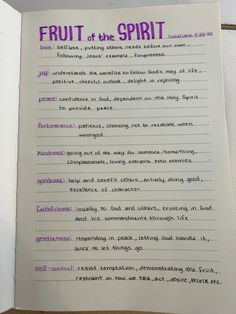 FRUIT of the SPIRIT Galatians 5:22-23
love: selfless, putting others needs before our own,
following Jesus' example, forgiveness
joy: understands the benefits to follow God's way of life,
positive, cheerful outlook, delight in rejoicing
peace: confidence in God, dependent on the Holy Spirit
to provide peace
forbearance: patience, choosing not to retaliate when
wronged
kindness: going out of the way for someone/something,
compassionate, loving everyone even enemies
goodness: help and benefit others, actively doing good,
excellence of character
faithfulness: loyalty to God and others, trusting in God
and his commandments through life
gentleness: responding in peace, letting God handle it,
quick to let things go
self-control: resist temptation, demonstrating the fruit,
restraint on how we talk, act, desire, think etc.